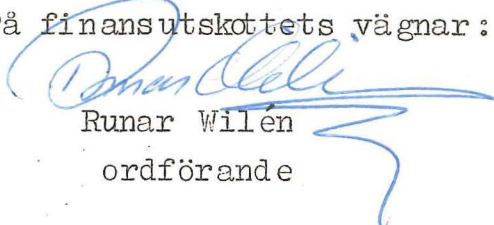 På finansutskottets vägnar:
Runar Wilén
ordförande